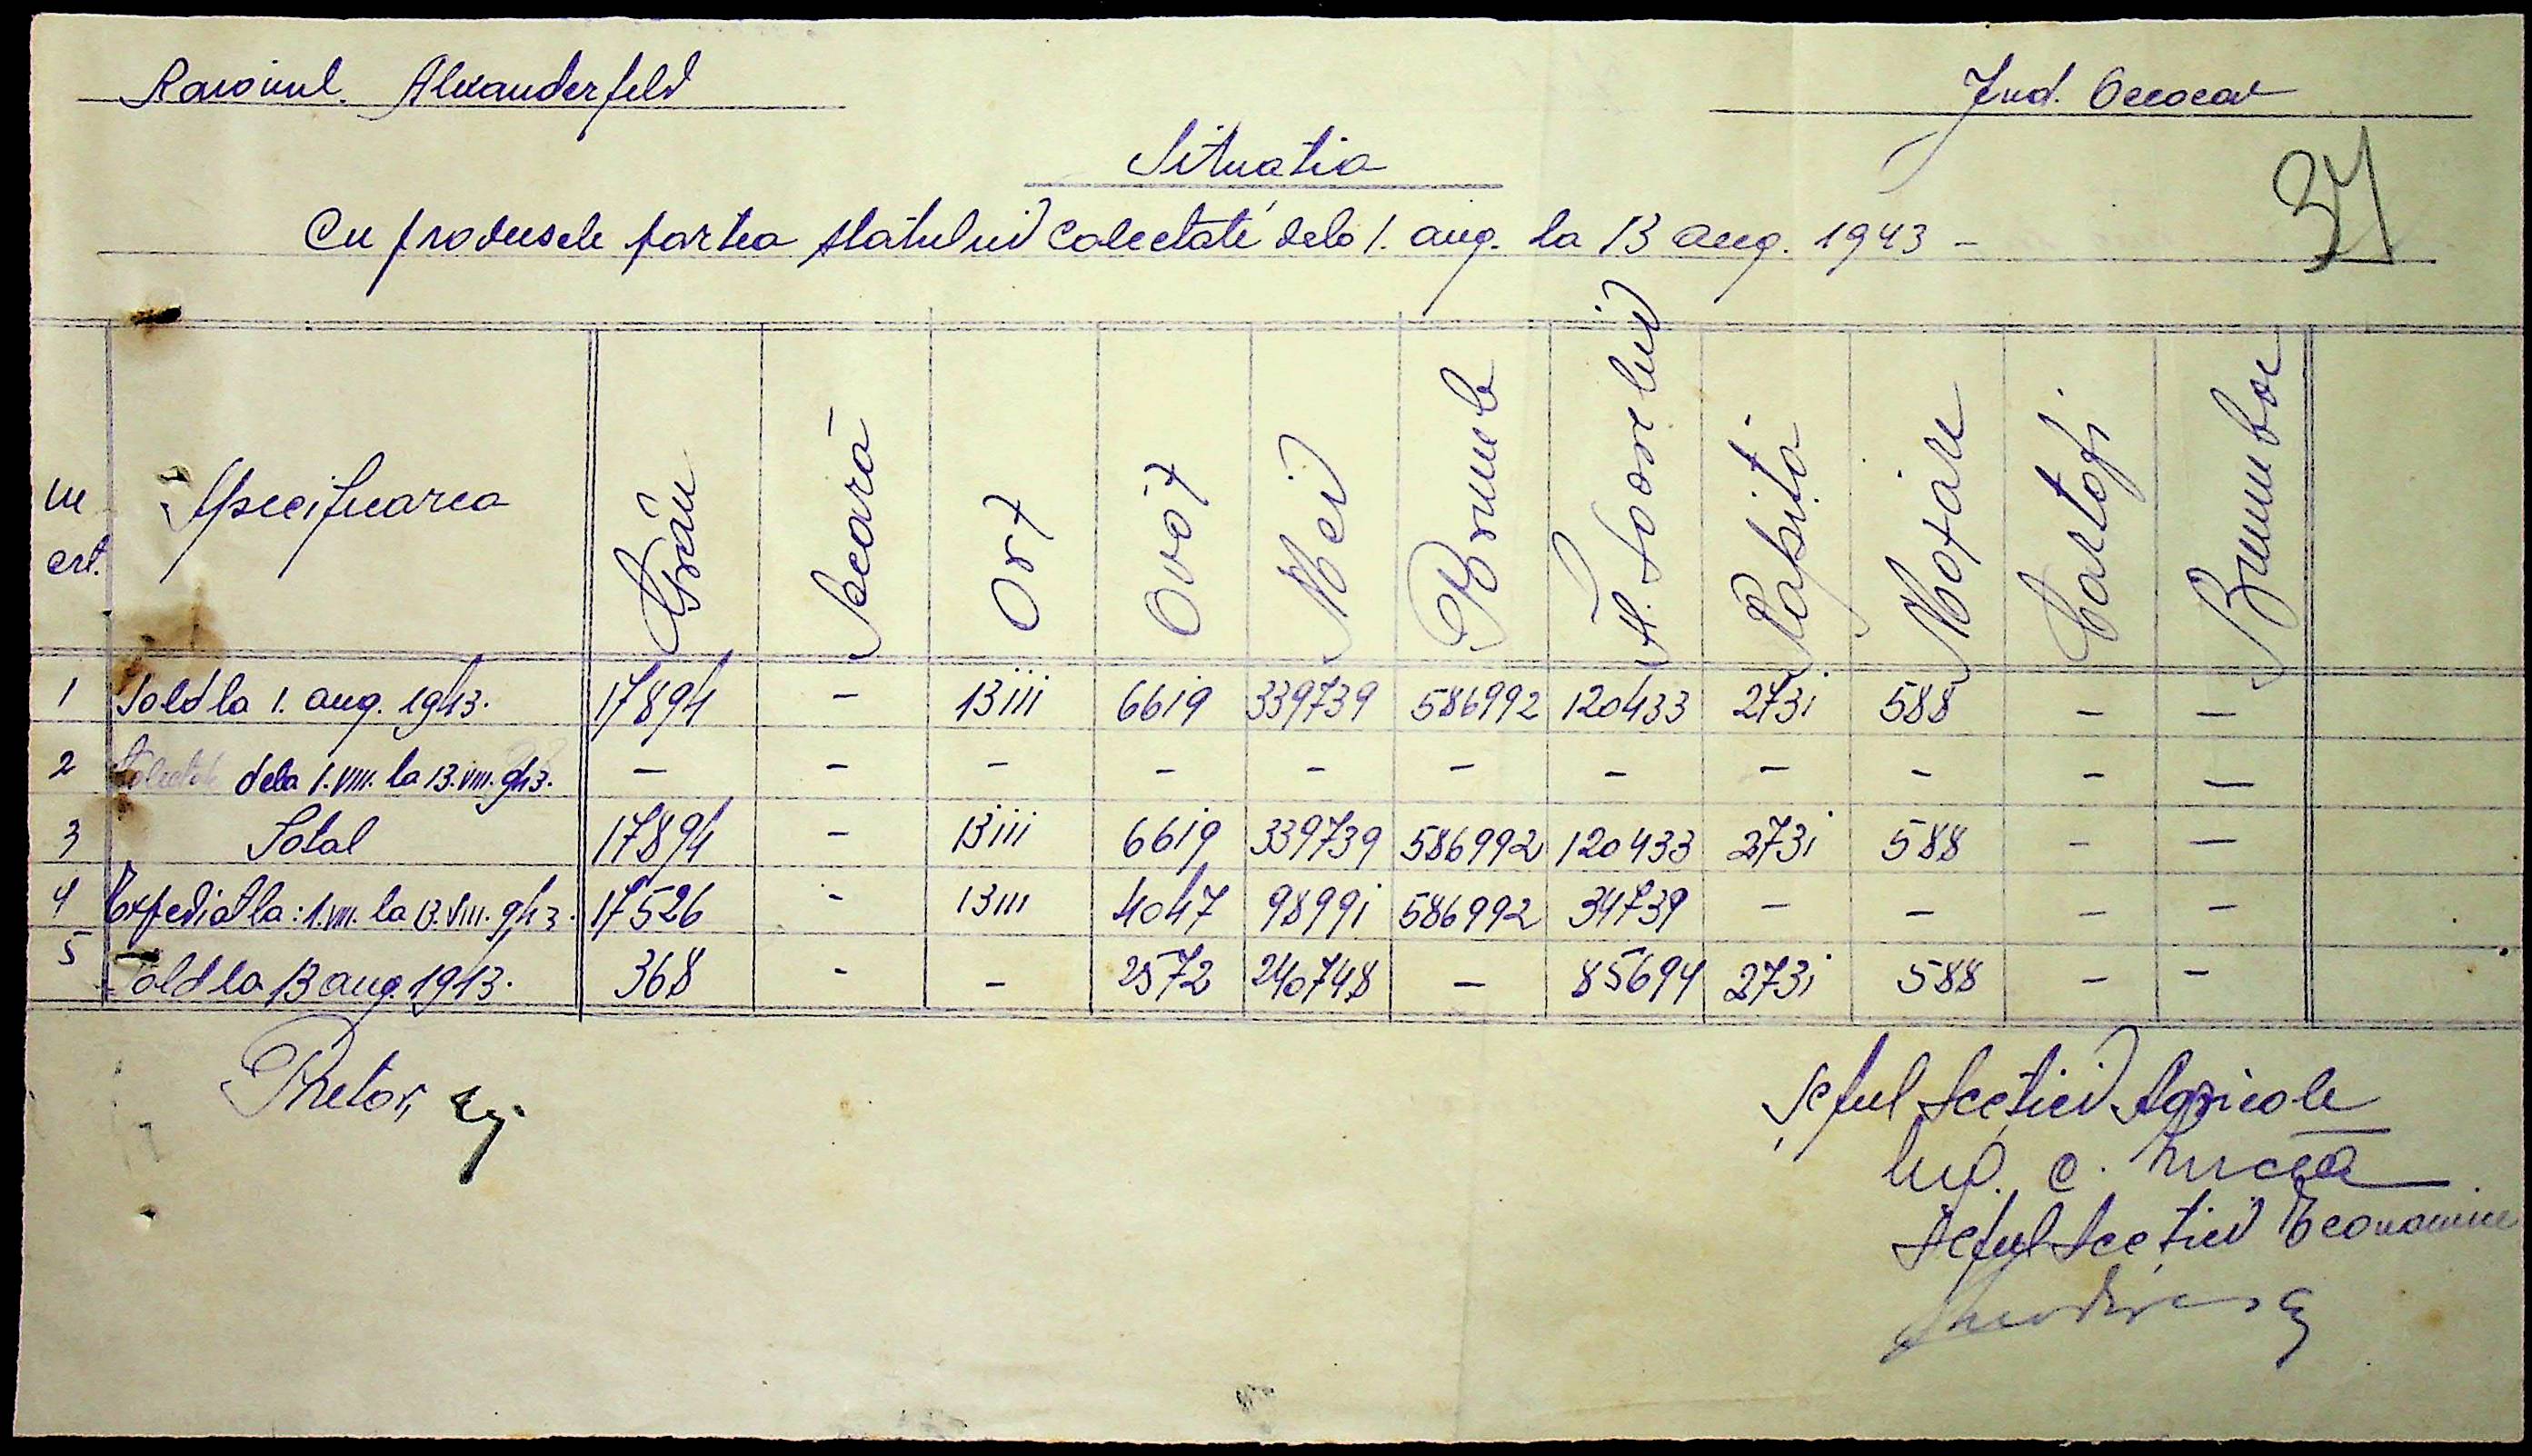 Raionul. Alexanderfeld
Jud. Oceacov
Situatia
37
Cu produsele partea statului colectate dela 1. aug. la 13 aug. 1943 -
Nr crt. Specificarea Grâu Secară Orz Ovăz Mei Porumb Fl. Soarelui Rapiță Mazăre Cartofi Bumbac
1 Sold la 1. aug. 1943. 17894 - 13111 6619 339739 586992 120433 2731 588 - -
2 Colectate dela 1.VIII. la 13.VIII.943. - - - - - - - - - - -
3 Total 17894 - 13111 6619 339739 586992 120433 2731 588 - -
4 Expediat la: 1.VIII. la 13.VIII.943. 17526 - 13111 4047 98991 586992 34739 - - - -
5 Sold la 13 aug. 1943. 368 - - 2572 240748 - 85694 2731 588 - -
Pretor,
Șeful Secției Agricole
Ing. C.
Șeful Secției Economice